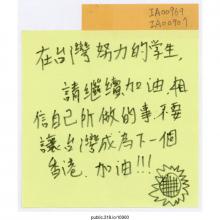 IA00969
IA00907
在台灣努力的學生,
請繼續加油,相
信自己所做的事,不要
讓台灣成為下一個
香港,加油!!!
public.318.io/10960